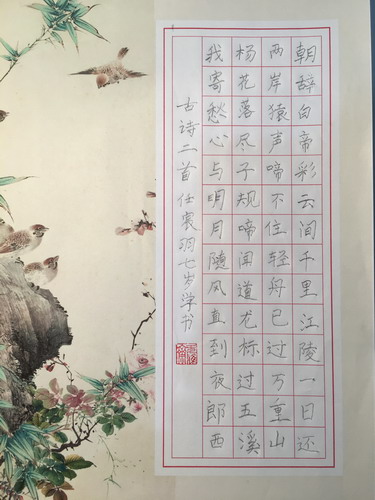 朝辞白帝彩云间千里江陵一日还
两岸猿声啼不住轻舟已过万重山
杨花落尽子规啼闻道龙标过五溪
我寄愁心与明月随风直到夜郎西
古诗二首 任宸羽七岁学书